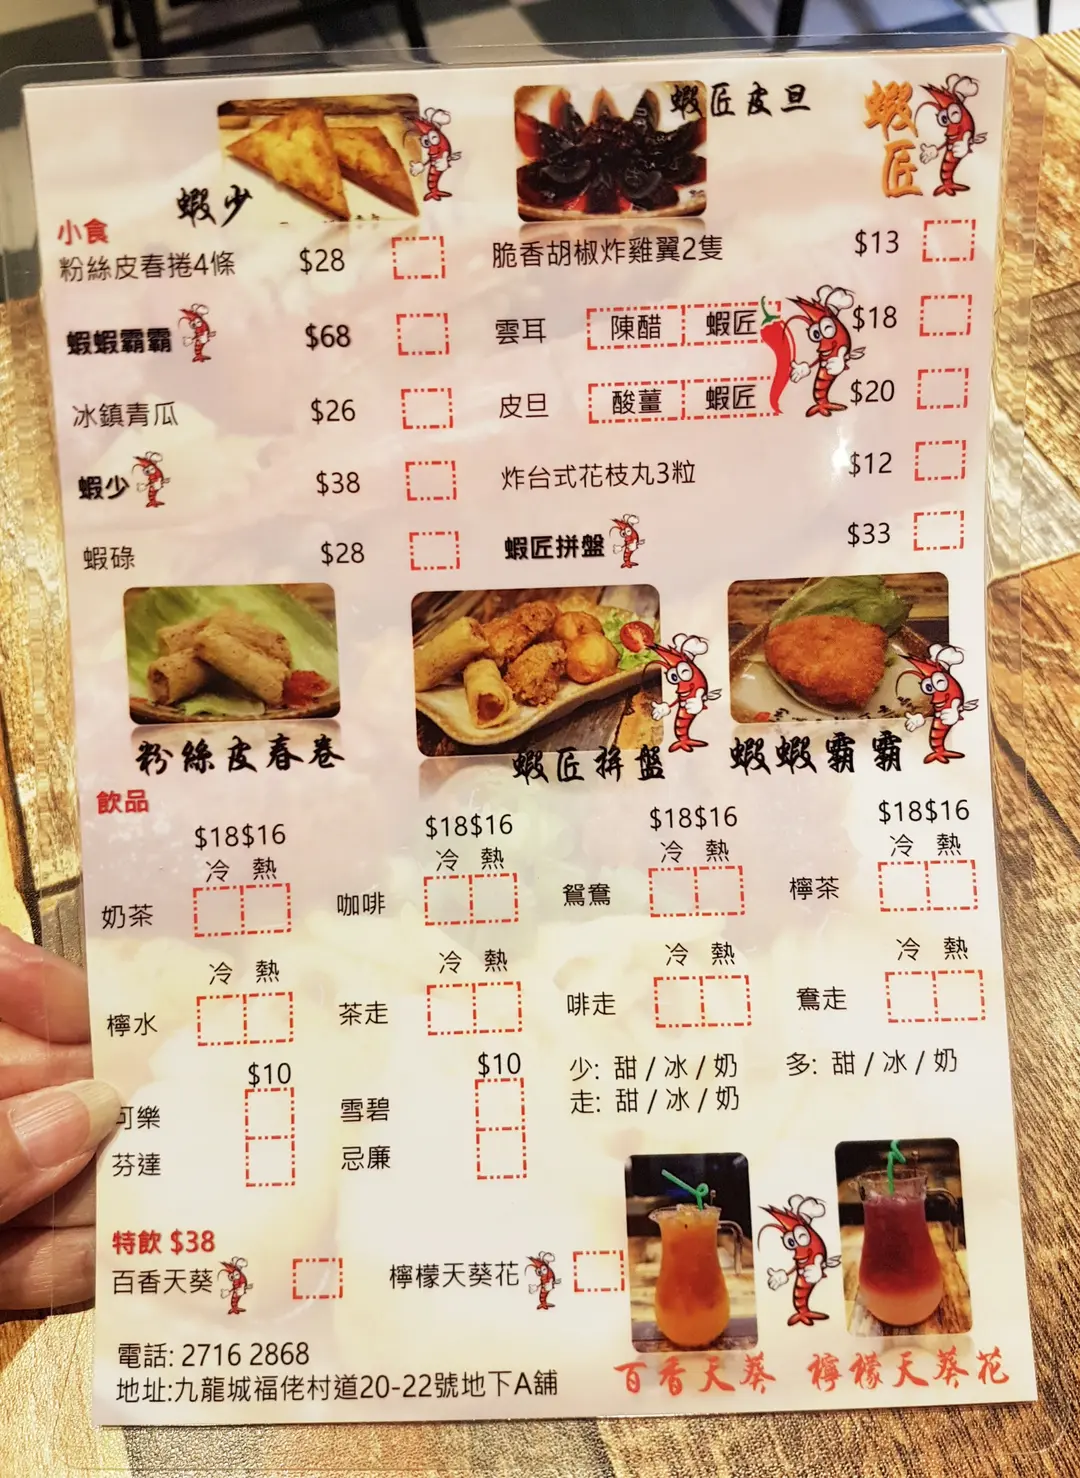 蝦匠皮旦
蝦匠
蝦少
小食
粉絲皮春捲4條 $28
脆香胡椒炸雞翼2隻 $13
蝦蝦霸霸 $68
雲耳 陳醋 蝦匠 $18
冰鎮青瓜 $26
皮旦 酸薑 蝦匠 $20
蝦少 $38
炸台式花枝丸3粒 $12
蝦碌 $28
蝦匠拼盤 $33
粉絲皮春卷
蝦匠拼盤
蝦蝦霸霸
飲品
$18$16 $18$16 $18$16 $18$16
冷 熱 冷 熱 冷 熱 冷 熱
奶茶 咖啡 鴛鴦 檸茶
冷 熱 冷 熱 冷 熱 冷 熱
檸水 茶走 啡走 鴦走
$10 $10
少: 甜 / 冰 / 奶 多: 甜 / 冰 / 奶
走: 甜 / 冰 / 奶
可樂 雪碧
芬達 忌廉
特飲 $38
百香天葵 檸檬天葵花
百香天葵 檸檬天葵花
電話: 2716 2868
地址:九龍城福佬村道20-22號地下A舖